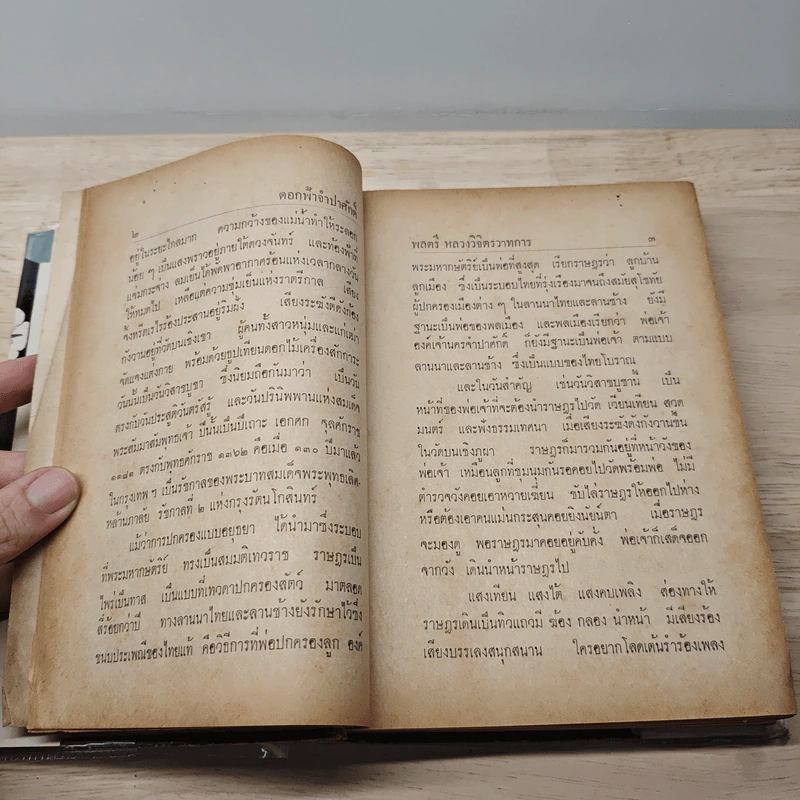 ๒
ดอกฟ้าจำปาศักดิ์
อยู่ในระยะไกลมาก ความกว้างของแม่น้ำทำให้ระลอก
น้อย ๆ เป็นแสงพราวอยู่ภายใต้ดวงจันทร์ และท้องฟ้าที่
แจ่มกระจ่าง ลมเย็นได้พัดพาอากาศร้อนแห่งเวลากลางวัน
ให้หมดไป เหลือแต่ความชุ่มเย็นแห่งราตรีกาล เสียง
จิ้งหรีดเรไรร้องประสานอยู่ริมฝั่ง เสียงระฆังตีดังก้อง
กังวานอยู่ที่วัดบนเชิงเขา ผู้คนทั้งสาวหนุ่มและแก่เฒ่า
จัดแจงแต่งกาย พร้อมด้วยธูปเทียนดอกไม้เครื่องสักการะ
วันนั้นเป็นวันวิสาขบูชา ซึ่งนิยมถือกันมาว่า เป็นวัน
ตรงกับวันประสูติวันตรัสรู้ และวันปรินิพพานแห่งสมเด็จ
พระสัมมาสัมพุทธเจ้า ปีนั้นเป็นปีเถาะ เอกศก จุลศักราช
๑๑๘๑ ตรงกับพุทธศักราช ๒๓๖๒ คือเมื่อ ๑๓๐ ปีมาแล้ว
ในกรุงเทพ ฯ เป็นรัชกาลของพระบาทสมเด็จพระพุทธเลิศ-
หล้านภาลัย รัชกาลที่ ๒ แห่งกรุงรัตนโกสินทร์
แม้ว่าการปกครองแบบอยุธยา ได้นำมาซึ่งระบอบ
ที่พระมหากษัตริย์ ทรงเป็นสมมติเทวราช ราษฎรเป็น
ไพร่เป็นทาส เป็นแบบที่เทวดาปกครองสัตว์ มาตลอด
สี่ร้อยกว่าปี ทางลานนาไทยและลานช้างยังรักษาไว้ซึ่ง
ขนบประเพณีของไทยแท้ คือวิธีการที่พ่อปกครองลูก องค์
พลตรี หลวงวิจิตรวาทการ
๓
พระมหากษัตริย์เป็นพ่อที่สูงสุด เรียกราษฎรว่า ลูกบ้าน
ลูกเมือง ซึ่งเป็นระบอบไทยที่รุ่งเรืองมาจนถึงสมัยสุโขทัย
ผู้ปกครองเมืองต่าง ๆ ในลานนาไทยและลานช้าง ยังมี
ฐานะเป็นพ่อของพลเมือง และพลเมืองเรียกว่า พ่อเจ้า
องค์เจ้านครจำปาศักดิ์ ก็ยังมีฐานะเป็นพ่อเจ้า ตามแบบ
ลานนาและลานช้าง ซึ่งเป็นแบบของไทยโบราณ
และในวันสำคัญ เช่นวันวิสาขบูชานี้ เป็น
หน้าที่ของพ่อเจ้าที่จะต้องนำราษฎรไปวัด เวียนเทียน สวด
มนตร์ และฟังธรรมเทศนา เมื่อเสียงระฆังดังกังวานขึ้น
ในวัดบนเชิงภูผา ราษฎรก็มารวมกันอยู่ที่หน้าวังของ
พ่อเจ้า เหมือนลูกที่ชุมนุมกันรอคอยไปวัดพร้อมพ่อ ไม่มี
ตำรวจวังคอยเอาหวายเฆี่ยน ขับไล่ราษฎรให้ออกไปห่าง
หรือต้องเอาคนแม่นกระสุนคอยยิงนัยน์ตา เมื่อราษฎร
จะมองดู พอราษฎรมาคอยอยู่คับคั่ง พ่อเจ้าก็เสด็จออก
จากวัง เดินนำหน้าราษฎรไป
แสงเทียน แสงไต้ แสงคบเพลิง ส่องทางให้
ราษฎรเดินเป็นทิวแถวมี ฆ้อง กลอง นำหน้า มีเสียงร้อง
เสียงบรรเลงสนุกสนาน ใครอยากโลดเต้นรำร้องเพลง